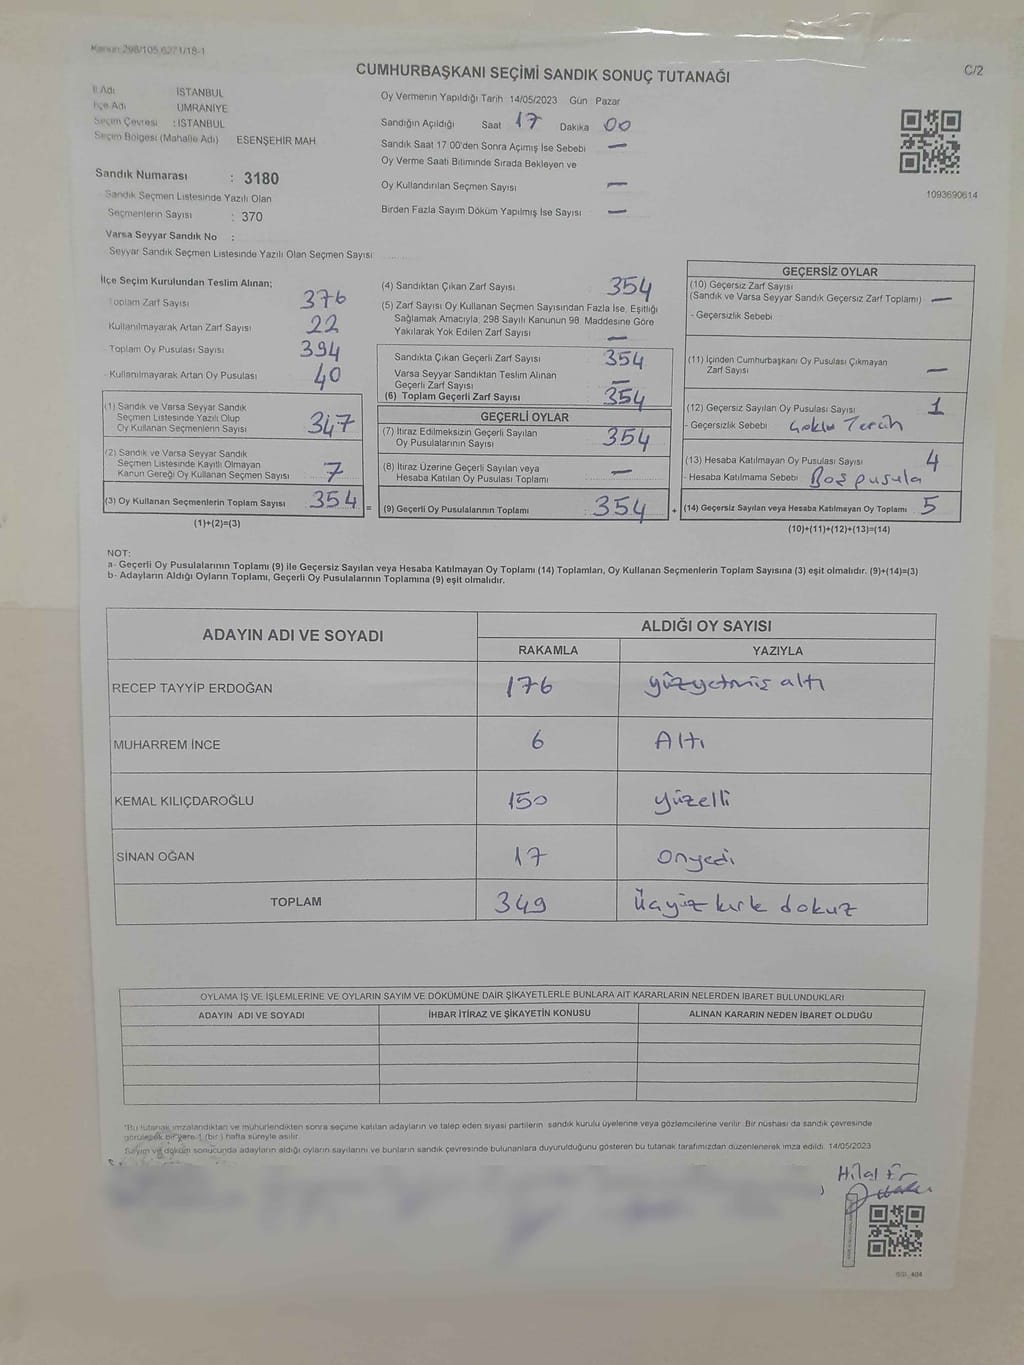 Kanun:298/105,6271/18-1
CUMHURBAŞKANI SEÇİMİ SANDIK SONUÇ TUTANAĞI
C/2
İl Adı İSTANBUL
İlçe Adı ÜMRANİYE
Seçim Çevresi : İSTANBUL
Seçim Bölgesi (Mahalle Adı) ESENŞEHİR MAH
Sandık Numarası : 3180
Sandık Seçmen Listesinde Yazılı Olan
Seçmenlerin Sayısı : 370
Varsa Seyyar Sandık No :
Seyyar Sandık Seçmen Listesinde Yazılı Olan Seçmen Sayısı
Oy Vermenin Yapıldığı Tarih 14/05/2023 Gün Pazar
Sandığın Açıldığı Saat 17 Dakika 00
Sandık Saat 17:00'den Sonra Açımış İse Sebebi —
Oy Verme Saati Bitiminde Sırada Bekleyen ve
Oy Kullandırılan Seçmen Sayısı —
Birden Fazla Sayım Döküm Yapılmış İse Sayısı —
1093690614
İlçe Seçim Kurulundan Teslim Alınan;
Toplam Zarf Sayısı 376
Kullanılmayarak Artan Zarf Sayısı 22
- Toplam Oy Pusulası Sayısı 394
- Kullanılmayarak Artan Oy Pusulası 40
(1) Sandık ve Varsa Seyyar Sandık
Seçmen Listesinde Yazılı Olup
Oy Kullanan Seçmenlerin Sayısı 347
(2) Sandık ve Varsa Seyyar Sandık
Seçmen Listesinde Kayıtlı Olmayan
Kanun Gereği Oy Kullanan Seçmen Sayısı 7
(3) Oy Kullanan Seçmenlerin Toplam Sayısı 354 =
(1)+(2)=(3)
(4) Sandıktan Çıkan Zarf Sayısı 354
(5) Zarf Sayısı Oy Kullanan Seçmen Sayısından Fazla İse, Eşitliği
Sağlamak Amacıyla, 298 Sayılı Kanunun 98. Maddesine Göre
Yakılarak Yok Edilen Zarf Sayısı —
Sandıkta Çıkan Geçerli Zarf Sayısı 354
Varsa Seyyar Sandıktan Teslim Alınan
Geçerli Zarf Sayısı —
(6) Toplam Geçerli Zarf Sayısı 354
GEÇERLİ OYLAR
(7) İtiraz Edilmeksizin Geçerli Sayılan
Oy Pusulalarının Sayısı 354
(8) İtiraz Üzerine Geçerli Sayılan veya
Hesaba Katılan Oy Pusulası Toplamı —
(9) Geçerli Oy Pusulalarının Toplamı 354 +
GEÇERSİZ OYLAR
(10) Geçersiz Zarf Sayısı
(Sandık ve Varsa Seyyar Sandık Geçersiz Zarf Toplamı) —
- Geçersizlik Sebebi
(11) İçinden Cumhurbaşkanı Oy Pusulası Çıkmayan
Zarf Sayısı —
(12) Geçersiz Sayılan Oy Pusulası Sayısı 1
- Geçersizlik Sebebi Çoklu Tercih
(13) Hesaba Katılmayan Oy Pusulası Sayısı 4
- Hesaba Katılmama Sebebi Boş pusula
(14) Geçersiz Sayılan veya Hesaba Katılmayan Oy Toplamı 5
(10)+(11)+(12)+(13)=(14)
NOT:
a- Geçerli Oy Pusulalarının Toplamı (9) ile Geçersiz Sayılan veya Hesaba Katılmayan Oy Toplamı (14) Toplamları, Oy Kullanan Seçmenlerin Toplam Sayısına (3) eşit olmalıdır. (9)+(14)=(3)
b- Adayların Aldığı Oyların Toplamı, Geçerli Oy Pusulalarının Toplamına (9) eşit olmalıdır.
ADAYIN ADI VE SOYADI ALDIĞI OY SAYISI
RAKAMLA YAZIYLA
RECEP TAYYİP ERDOĞAN 176 yüzyetmiş altı
MUHARREM İNCE 6 Altı
KEMAL KILIÇDAROĞLU 150 yüzelli
SİNAN OĞAN 17 onyedi
TOPLAM 349 Üçyüz kırk dokuz
OYLAMA İŞ VE İŞLEMLERİNE VE OYLARIN SAYIM VE DÖKÜMÜNE DAİR ŞİKAYETLERLE BUNLARA AİT KARARLARIN NELERDEN İBARET BULUNDUKLARI
ADAYIN ADI VE SOYADI İHBAR İTİRAZ VE ŞİKAYETİN KONUSU ALINAN KARARIN NEDEN İBARET OLDUĞU
*Bu tutanak imzalandıktan ve mühürlendikten sonra seçime katılan adayların ve talep eden siyasi partilerin sandık kurulu üyelerine veya gözlemcilerine verilir. Bir nüshası da sandık çevresinde
görülepek bir yere 1 (bir ) hafta süreyle asılır.
Sayım ve döküm sonucunda adayların aldığı oyların sayılarını ve bunların sandık çevresinde bulunanlara duyurulduğunu gösteren bu tutanak tarafımızdan düzenlenerek imza edildi. 14/05/2023
Hilal Er